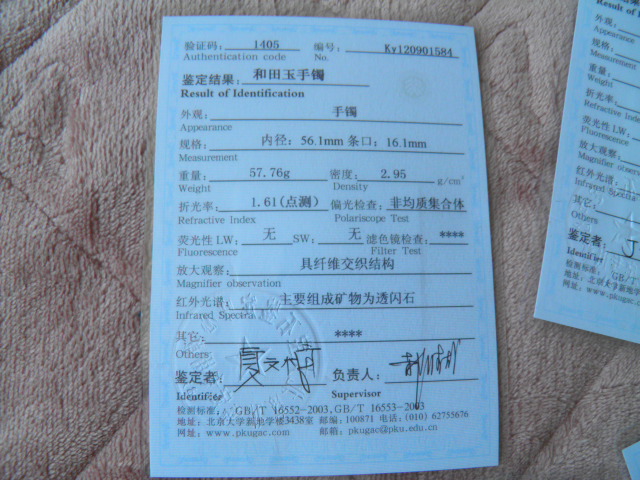 验证码: 1405 编号: Ky120901584
Authentication code No.
鉴定结果: 和田玉手镯
Result of Identification
外观: 手镯
Appearance
规格: 内径: 56.1mm 条口: 16.1mm
Measurement
重量: 57.76g 密度: 2.95 g/cm³
Weight Density
折光率: 1.61(点测) 偏光检查: 非均质集合体
Refractive Index Polariscope Test
荧光性 LW: 无 SW: 无 滤色镜检查: ****
Fluorescence Filter Test
放大观察: 具纤维交织结构
Magnifier observation
红外光谱: 主要组成矿物为透闪石
Infrared Spectra
其它: ****
Others
鉴定者: 负责人:
Identifier Supervisor
检测标准: GB/T 16552-2003, GB/T 16553-2003
地址: 北京大学新地学楼3438室 邮编: 100871 电话: (010) 62755676
网址: www.pkugac.com 邮箱: pkugac@pku.edu.cn
Result of
外观:
Appearance
规格:
Measurement
重量:
Weight
折光率:
Refractive Index
荧光性 LW:
Fluorescence
放大观察:
Magnifier observation
红外光谱:
Infrared Spectra
其它:
Others
鉴定者:
Identifier
检测标准: GB/T
地址: 北京大学新地
网址: www.pkug